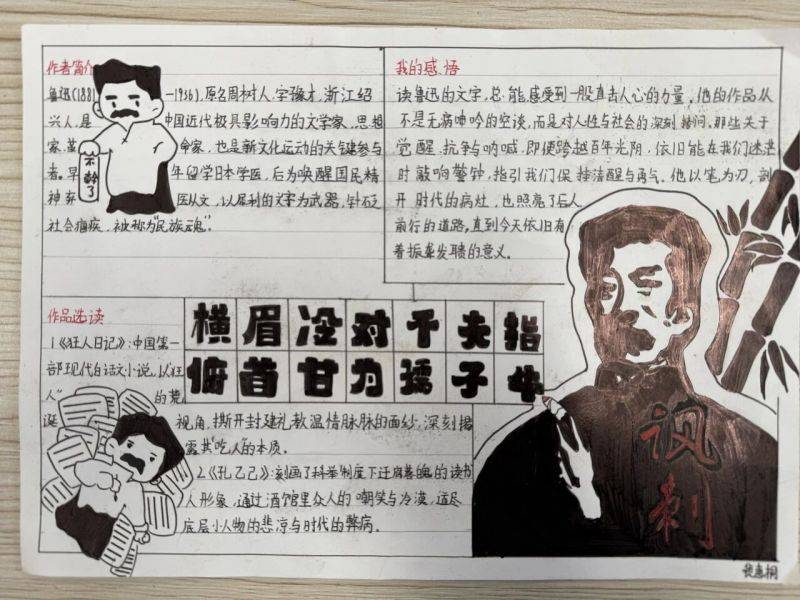 作者简介
鲁迅(1881—1936),原名周树人,字豫才,浙江绍
兴人,是中国近代极具影响力的文学家、思想
家、革命家,也是新文化运动的关键参与
者。早年留学日本学医,后为唤醒国民精
神弃医从文,以犀利的文字为武器,针砭
社会痼疾,被称为"民族魂"。
不干了
我的感悟
读鲁迅的文字,总能感受到一股直击人心的力量。他的作品从
不是无病呻吟的空谈,而是对人性与社会的深刻拷问。那些关于
觉醒、抗争与呐喊,即便跨越百年光阴,依旧能在我们迷茫
时敲响警钟,指引我们保持清醒与勇气。他以笔为刃,剖
开时代的病灶,也照亮了后人
前行的道路,直到今天依旧有
着振聋发聩的意义。
作品选读
横眉冷对千夫指
俯首甘为孺子牛
1.《狂人日记》:中国第一
部现代白话文小说,以狂
人"的荒
诞视角,撕开封建礼教温情脉脉的面纱,深刻揭
露其"吃人"的本质。
2.《孔乙己》:刻画了科举制度下迂腐善良的读书
人形象,通过酒馆里众人的嘲笑与冷漠,道尽
底层小人物的悲凉与时代的弊病。
讽刺